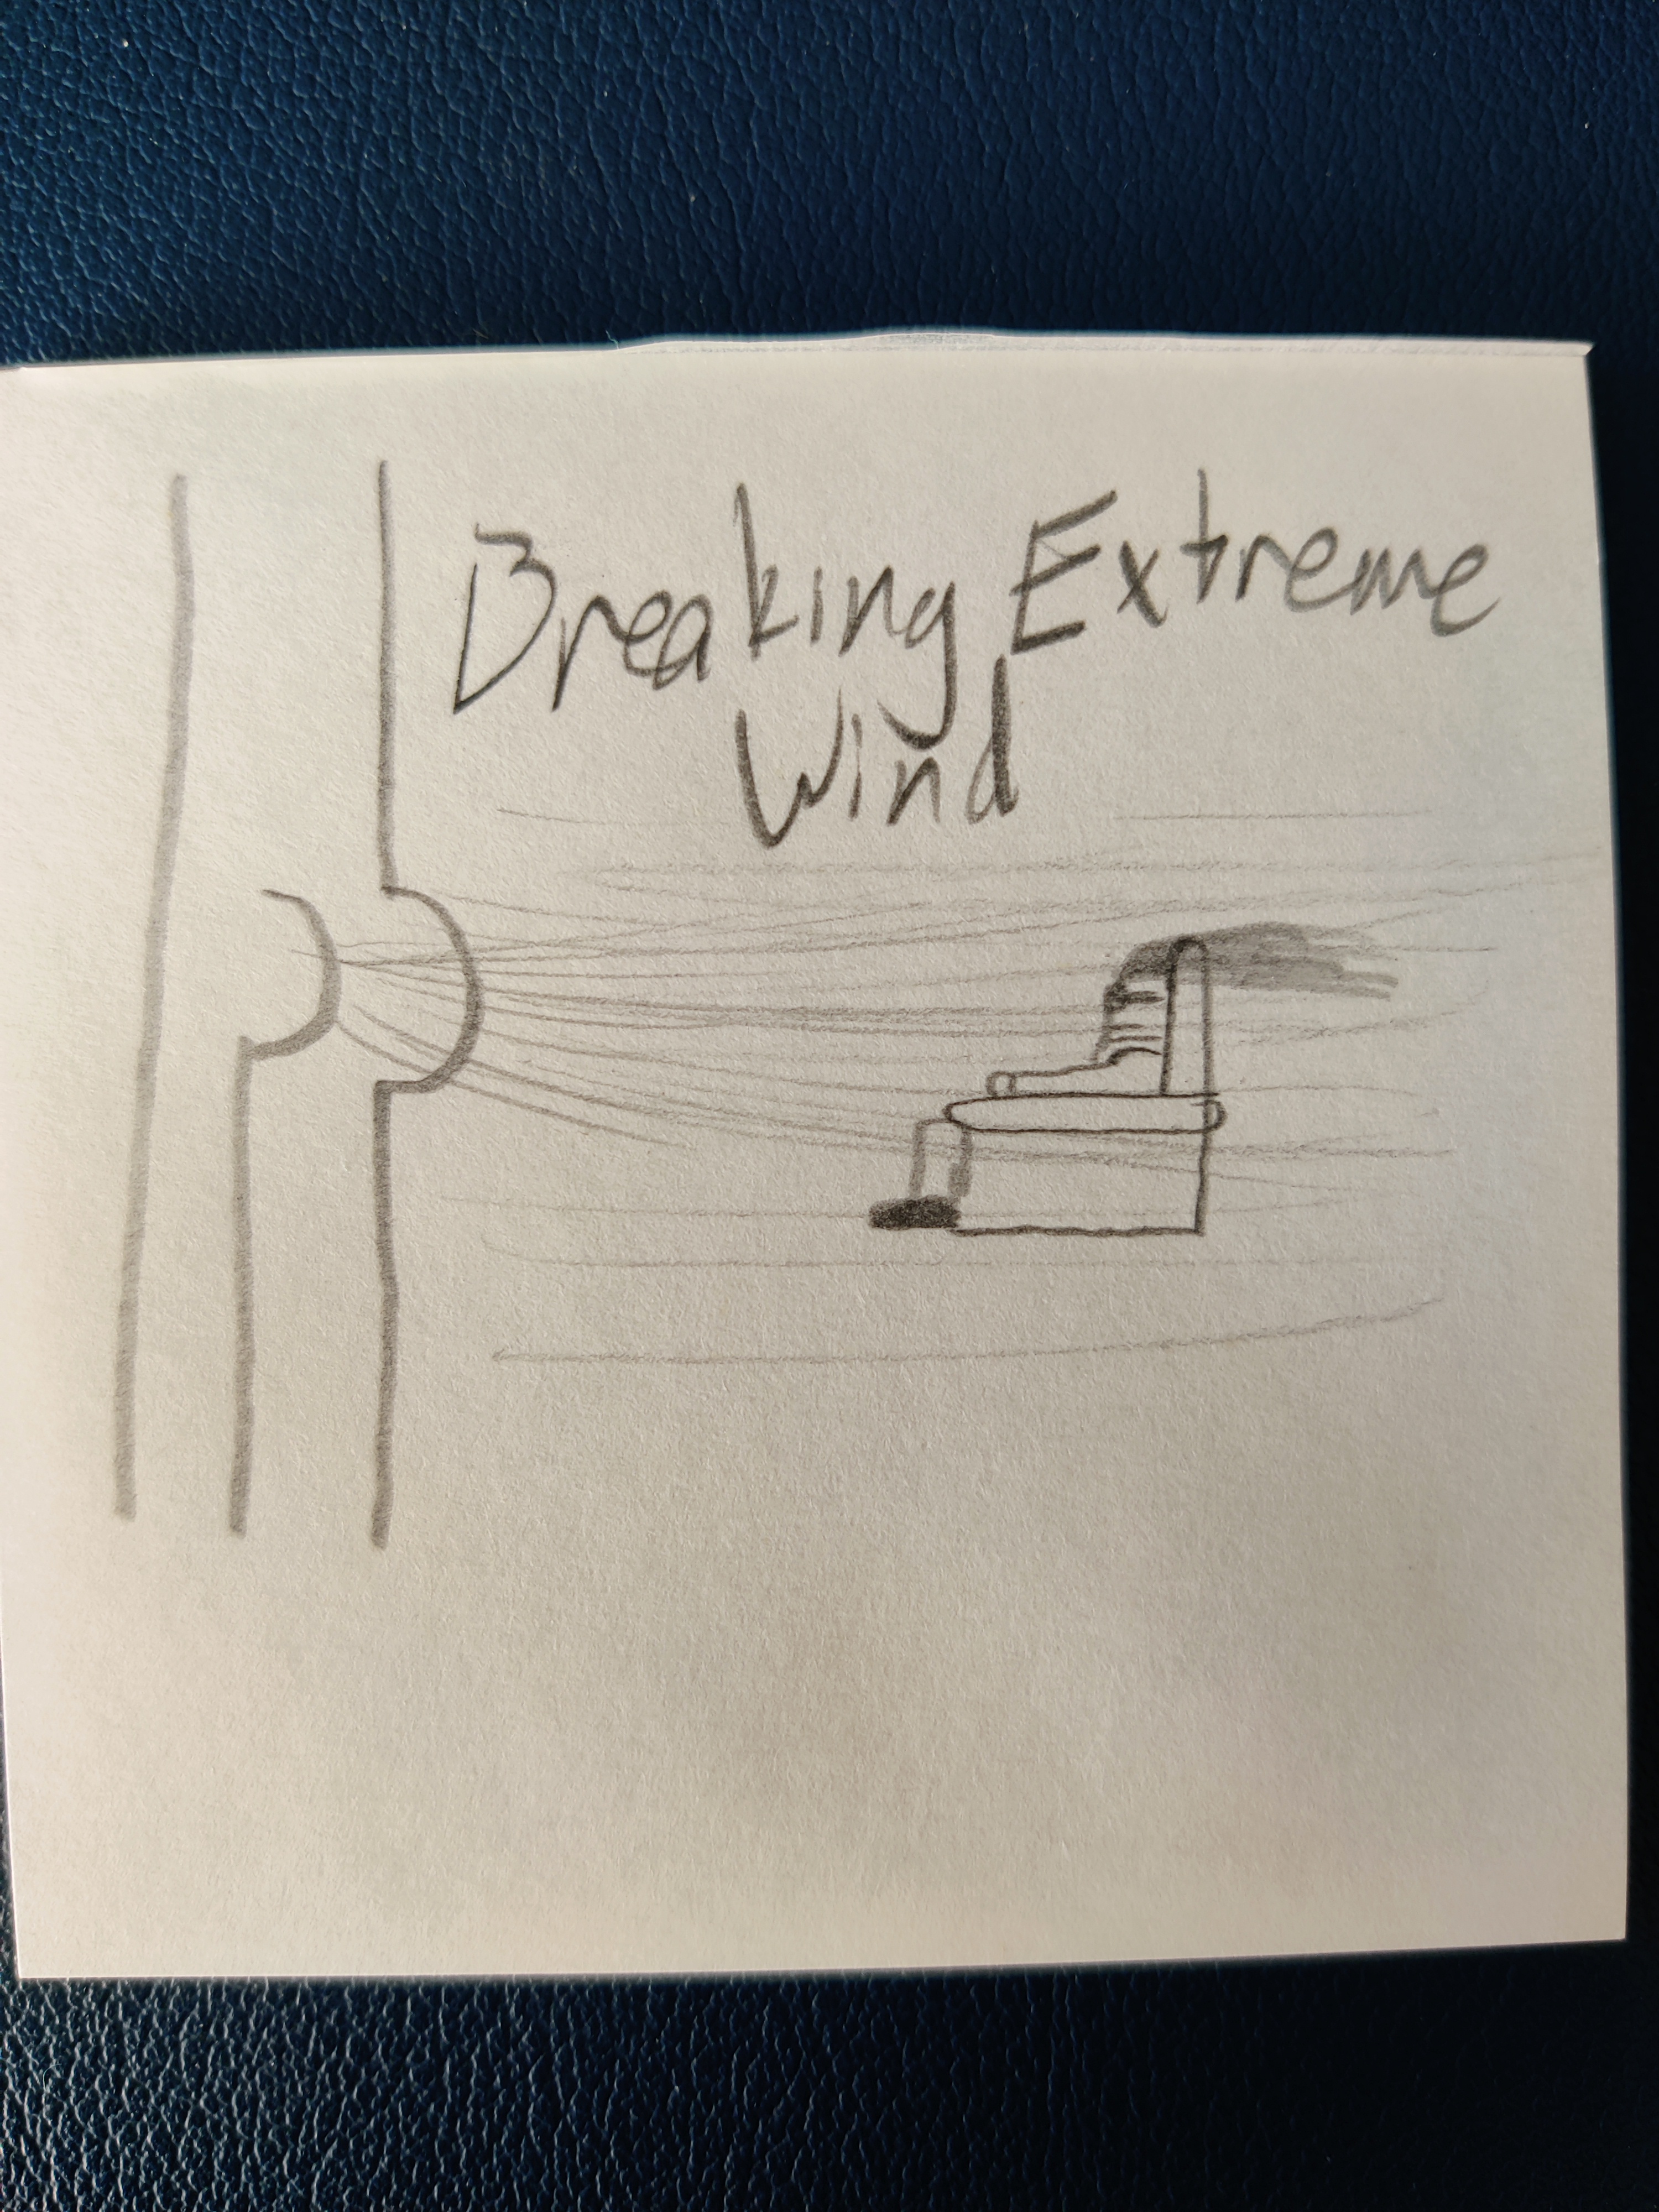 Breaking Extreme
Wind